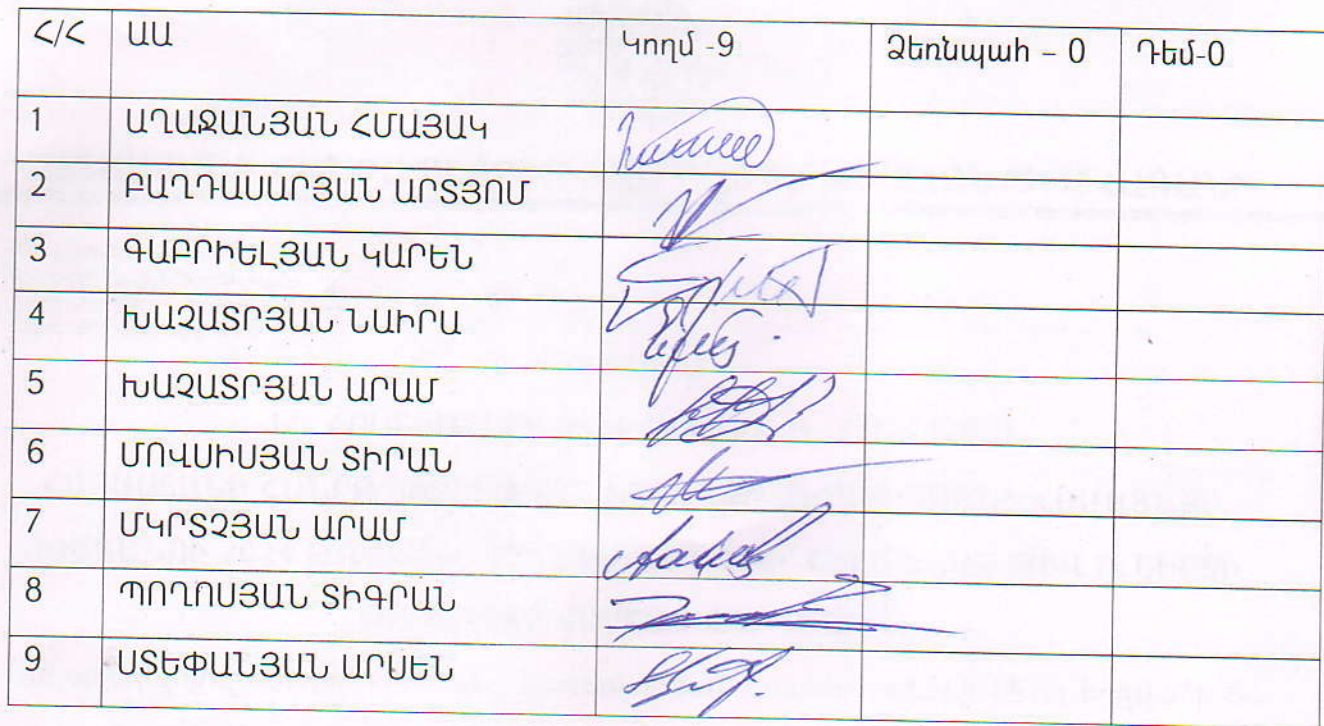 Հ/Հ ԱԱ Կողմ -9 Ձեռնպահ – 0 Դեմ-0
1 ԱՂԱՋԱՆՅԱՆ ՀՄԱՅԱԿ
2 ԲԱՂԴԱՍԱՐՅԱՆ ԱՐՏՅՈՄ
3 ԳԱԲՐԻԵԼՅԱՆ ԿԱՐԵՆ
4 ԽԱՉԱՏՐՅԱՆ ՆԱԻՐԱ
5 ԽԱՉԱՏՐՅԱՆ ԱՐԱՄ
6 ՄՈՎՍԻՍՅԱՆ ՏԻՐԱՆ
7 ՄԿՐՏՉՅԱՆ ԱՐԱՄ
8 ՊՈՂՈՍՅԱՆ ՏԻԳՐԱՆ
9 ՍՏԵՓԱՆՅԱՆ ԱՐՍԵՆ